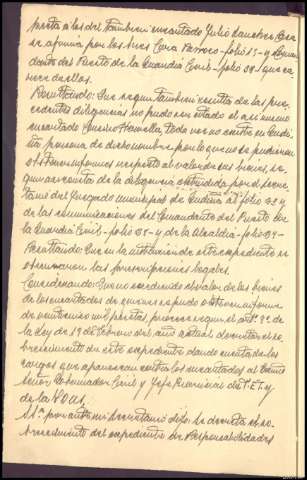 pecta á los del tambien encartado Julio Sanchez
se afirma por los Sres Cura Párroco - folio 15 - y Coman
dante del Puesto de la Guardia Civil - folio 34 - que ca
rece de ellos.
Resultando: Que segun tambien resulta de las pre
cedentes diligencias no pudo ser citado el asi mismo
encartado toda vez no existe en Cudia
persona de dicho nombre por lo que no se pudieron
obtener informes respecto al valor de sus bienes, se
gun asi consta de la diligencia extendida por el Secre
tario del Juzgado municipal de Cudia al folio 32 y
de las comunicaciones del Comandante del Puesto de
la Guardia Civil - folio 35 - y de la Alcaldia - folio 37 -
Resultando: Que en la instrucción de este expediente se
observaron las prescripciones legales.
Considerando: Que no excediendo el valor de los bienes
de los encartados de que se ha podido obtener informe
de veinticinco mil pesetas, procede segun el artº 8º de
la Ley de 19 de Febrero del año actual decretar el so
breseimiento de este expediente dando cuenta de los
cargos que aparezcan contra los encartados al Excmo
Señor Gobernador Civil y Jefe Provincial de F.E.T. y
de la J.O.N.S.
S.Sª por ante mi Secretario dijo: Se decreta el so
breseimiento del expediente de Responsabilidades